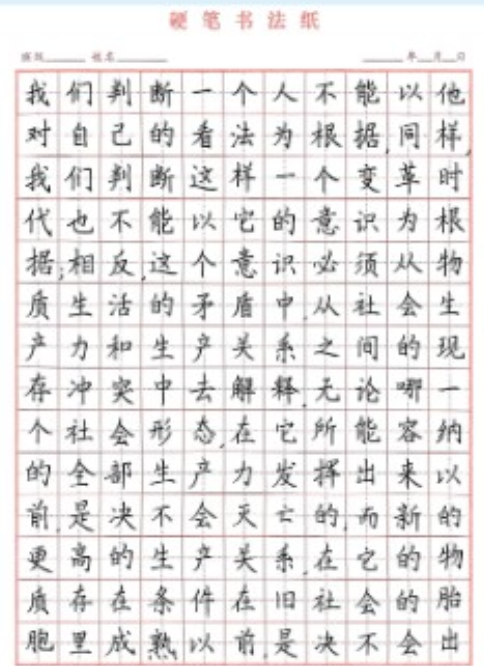 硬笔书法纸
班级______ 姓名______ ______年__月__日
我们判断一个人不能以他
对自己的看法为根据,同样,
我们判断这样一个变革时
代也不能以它的意识为根
据;相反,这个意识必须从物
质生活的矛盾中,从社会生
产力和生产关系之间的现
存冲突中去解释.无论哪一
个社会形态,在它所能容纳
的全部生产力发挥出来以
前,是决不会灭亡的,而新的
更高的生产关系,在它的物
质存在条件在旧社会的胎
胞里成熟以前,是决不会出